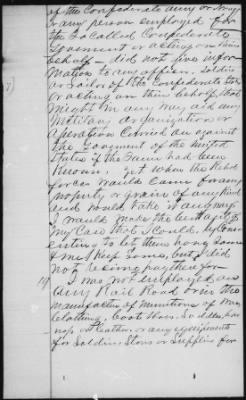 of the Confederate army or Navy
or any person employed for
the So Called Confederate
Goverment or acting on their
behalf - did not give infor
mation to any officer, Soldier
or Sailor of the Confederate
or acting on their behalf, that
might in any way aid any
Military organization or
operation Carried on against
the Goverment of the United
States if the Same had been
Known, yet when the Rebel
forces would Came for any
property or grain of any Kind
and would take it any way
I would make the best of
my Case that I Could, by Cons
enting to let them have some
& me Keep Some, but I did
not desire pay therefor
14 I was not employed on
any Rail Road or in the
manufacture of munitions of War
Clothing, boots Shoes, Saddles, har
ness or leather or any equipments
for Soldiers Stores or Supplies for